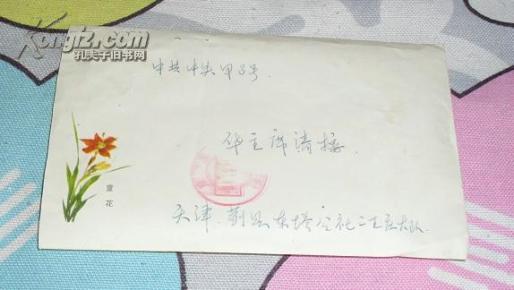 Kongfz.com
孔夫子旧书网
中共中央甲8号
华主席请接
萱花
天津蓟县东塔公社二王庄大队